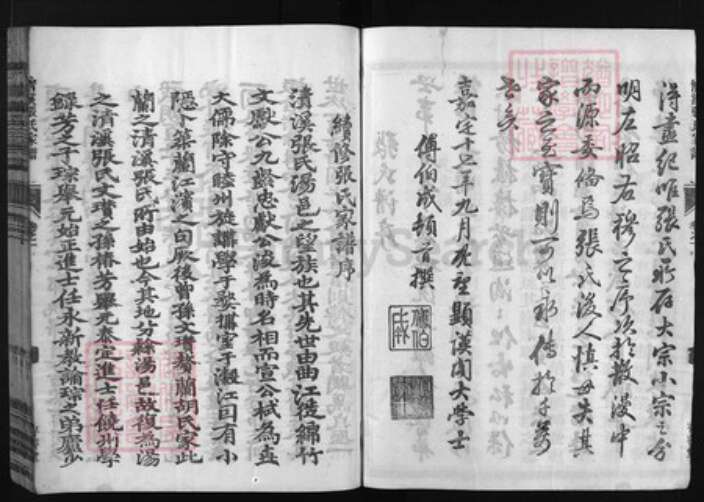 得盡紀唯張氏或石大宗小宗之分
明左昭右穆之序次於散漫中
而源委倫焉張氏後人慎毋失其
家之至寶則可以永傳於千萬
世矣
嘉定十七年九月 顯謨閣大學士
傅伯成頓首撰
續修張氏家譜序
清溪張氏湯邑之望族也其先世由曲江徙綿竹
文獻公九齡忠獻公浚為時名相而宣公栻為大
大儒除守睦州旋講學于歙攜室于瀫江因有小
隱今築蘭江濱之句厥後曾孫文瓚贅蘭胡氏家此
蘭之清溪張氏所由始也今其地分隸湯邑故復為湯
之清溪張氏文瓚之孫椿芳舉元泰定進士任饒州學
錄芳之子琮舉元始正進士任永新教諭琮之弟